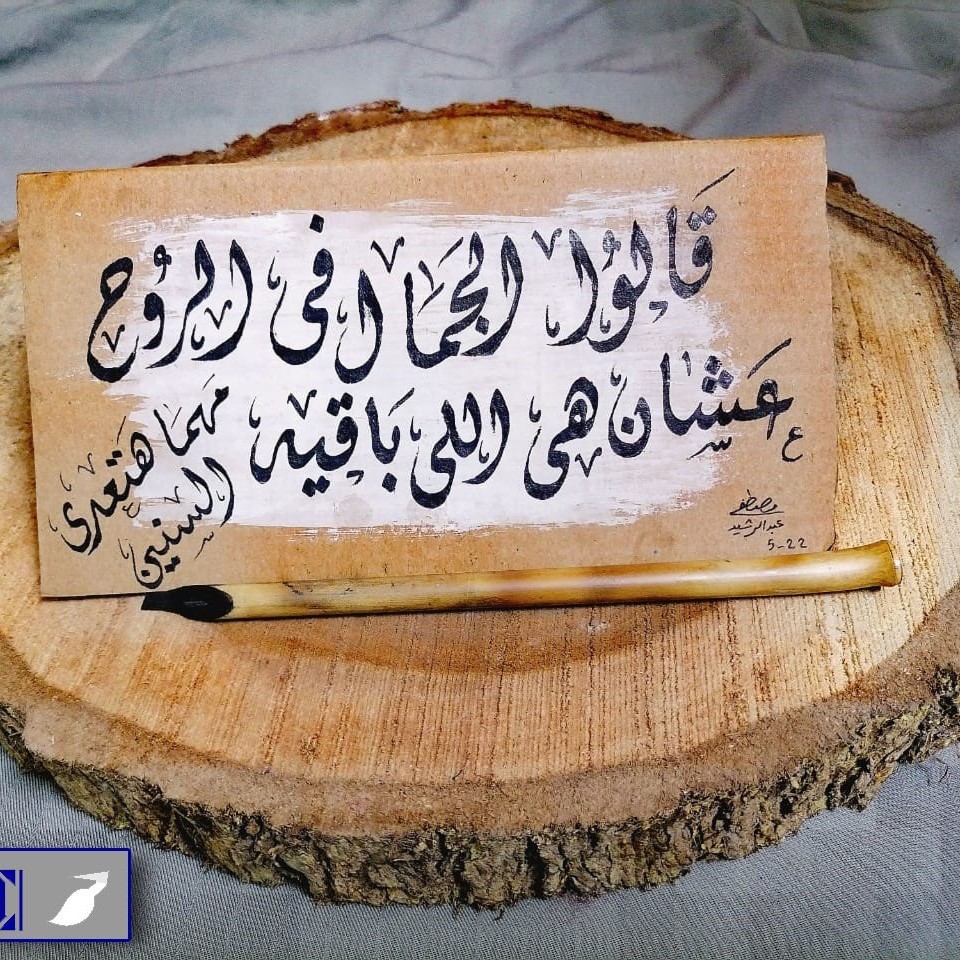 قَالُوُا الجَمَال فى الرُوح
عَشَان هى اللى بَاقيه
مَهما هَتعدى
السنين
مصطفى
عبدالرشيد
5-22